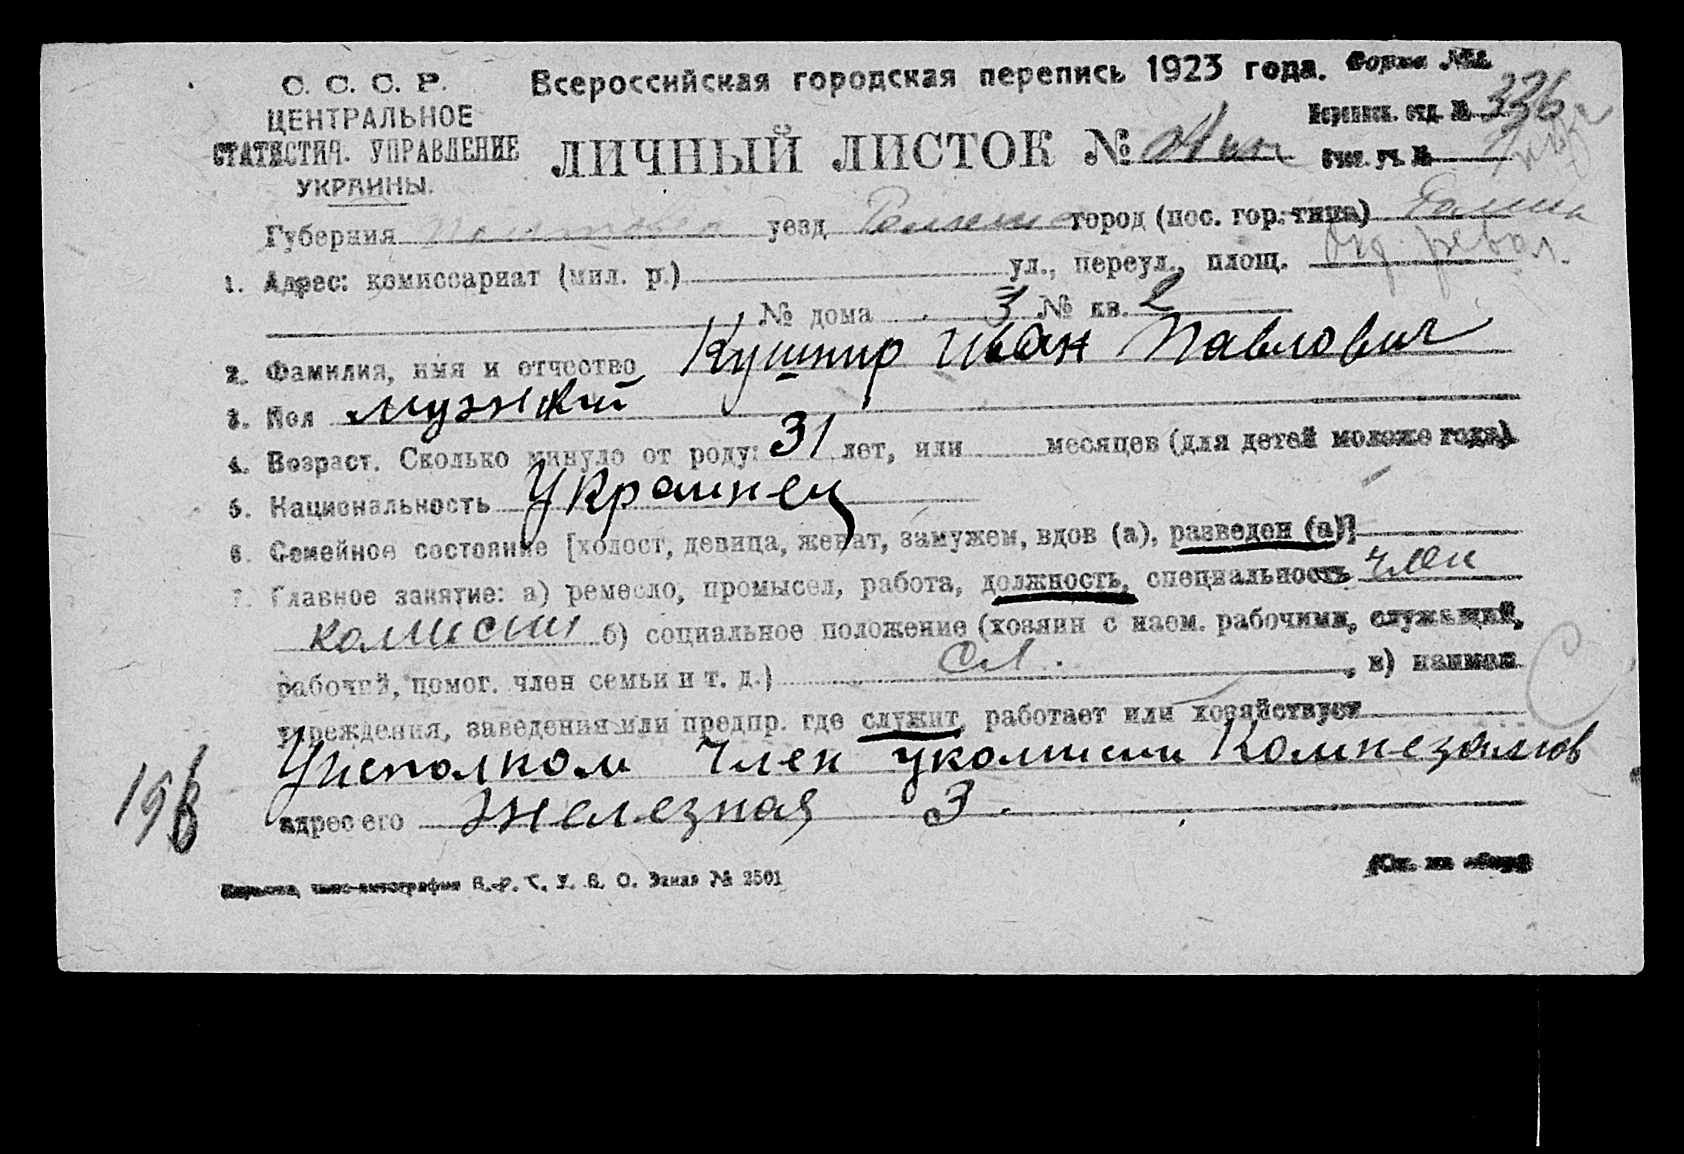 С. С. С. Р.
ЦЕНТРАЛЬНОЕ
СТАТИСТИЧ. УПРАВЛЕНИЕ
УКРАИНЫ.
Всероссийская городская перепись 1923 года. Форма №
Переписн. отд. № 336
ЛИЧНЫЙ ЛИСТОК №
Счет. уч. №
Губерния уезд город (пос. гор. типа)
1. Адрес: комиссариат (мил. р.) ул., переул., площ.
№ дома 3 № кв. 2
2. Фамилия, имя и отчество Кушнир Иван Павлович
3. Пол мужской
4. Возраст. Сколько минуло от роду: 31 лет, или месяцев (для детей моложе года)
5. Национальность Украинец
6. Семейное состояние [холост, девица, женат, замужем, вдов (а), разведен (а)]
7. Главное занятие: а) ремесло, промысел, работа, должность, специальность член
комисии б) социальное положение (хозяин с наем. рабочими, служащий,
рабочий, помог. член семьи и т. д.) сл. , в) наимен.
учреждения, заведения или предпр. где служит, работает или хозяйствует
Уисполком Член укомисии Комнезамов
адрес его Железная 3.
С
198
Н.-Р. Т. У. В. О. Заказ № 2501
(См. на обор.)